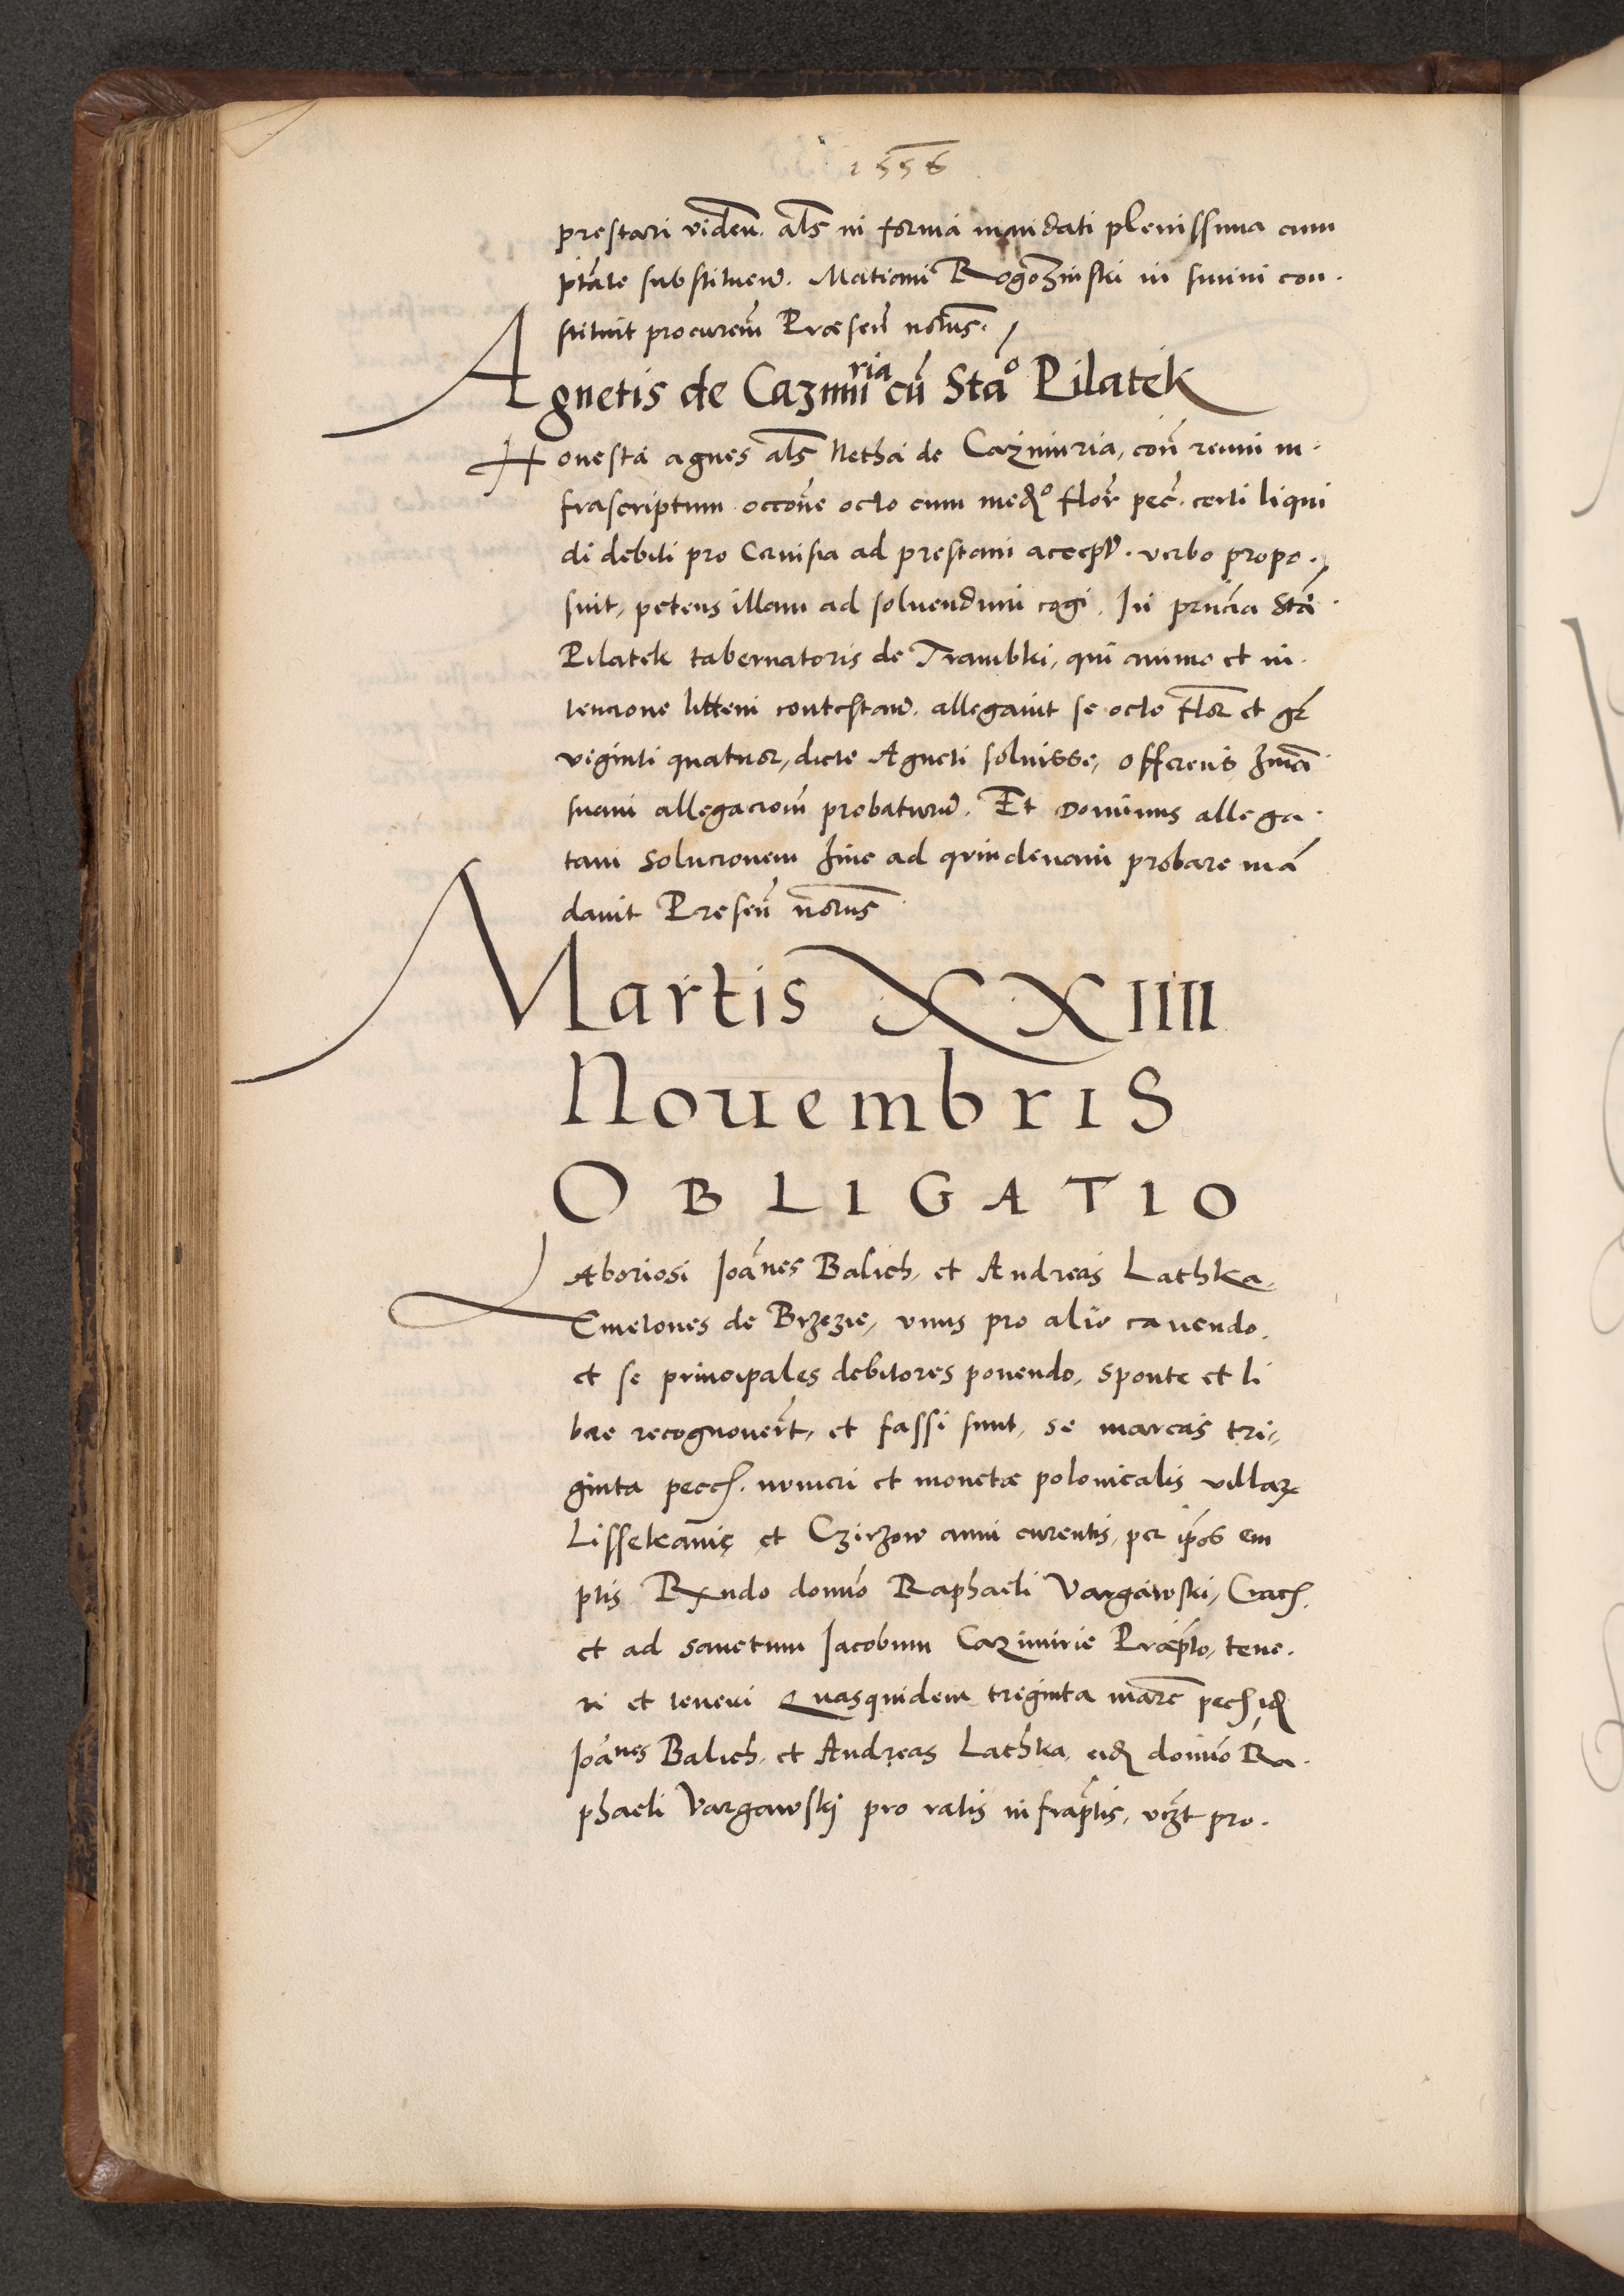 1556
prestari viden̄. als in forma mandati plenissima cum
ptāte substituen̄. Matiam Rogozinski in suum con.
stituit procurem̄ Præsen̄ notus.
Agnetis de Cazmiria cū Stao Pilatek
Honesta agnes als Netha de Cazimiria, con̄ reum in.
frascriptum occōne octo cum medo flor̄ pec̄. certi liqui
di debiti pro Cervisia ad prestam accept. verbo propo.
suit, petens illam ad soluendum cogi. In pn̄cia Sta
Pilatek tabernatoris de Trambki, qui animo et in.
tencione littem contestan̄. allegavit se octo flor et gr̄
viginti quatuor, dicte Agneti soluisse, offerens hmōi
suam allegaciom̄ probatur̄. Et Dominus allega.
tam solucionem hinc ad quindenam probare mā
davit Presen̄ notus
Martis XXIIII
Nouembris
OBLIGATIO
Laboriosi Joānes Balich, et Andreas Lathka,
Cmetones de Brzezie, vnus pro alio cavendo.
et se principales debitores ponendo, sponte et li
bre recognouer̄t, et fassi sunt, se marcas tri,
ginta pecch. numeri et monetæ polonicalis villar
Lisseckanie et Czirzow anni curentis, per ip̄os em
ptis Rndo domīo Raphaeli Vargawski, Crach.
et ad sanctum Jacobum Cazimirie Præp̄to, tene.
ri et teneri Quasquidem treginta marc̄ pech id
Joānes Balich, et Andreas Lathka, eid domīo Ra.
phaeli Vargawskj pro ratis infrap̄tis, vczt pro.